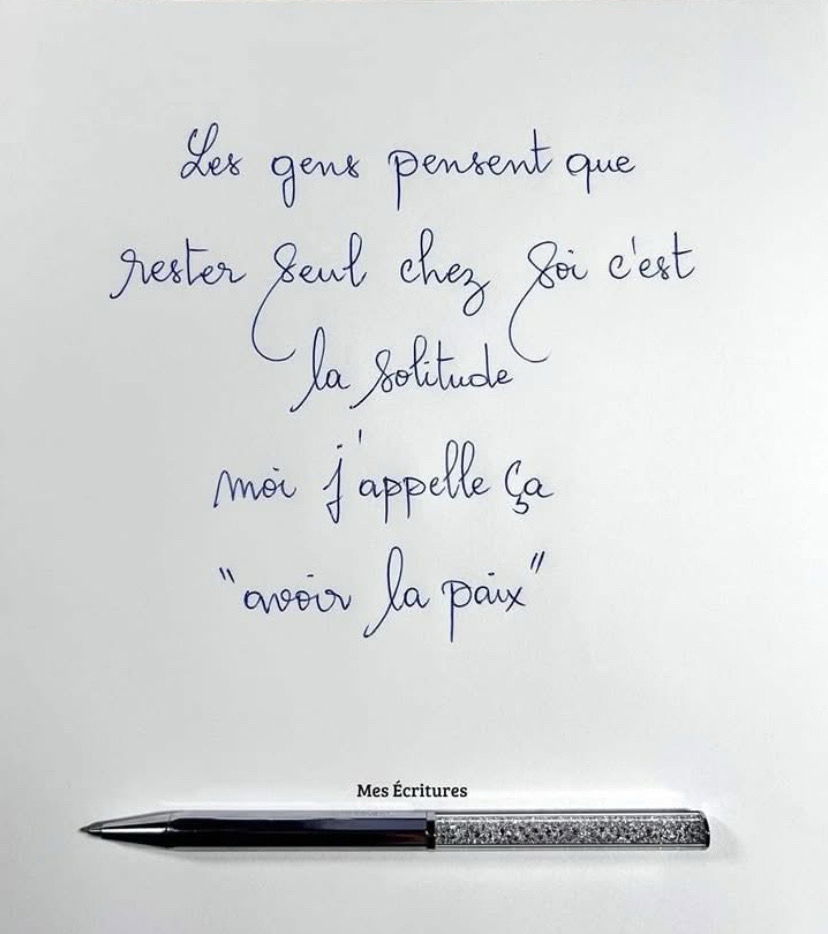 Les gens pensent que
rester seul chez soi c'est
la solitude
moi j'appelle ça
"avoir la paix"
Mes Écritures